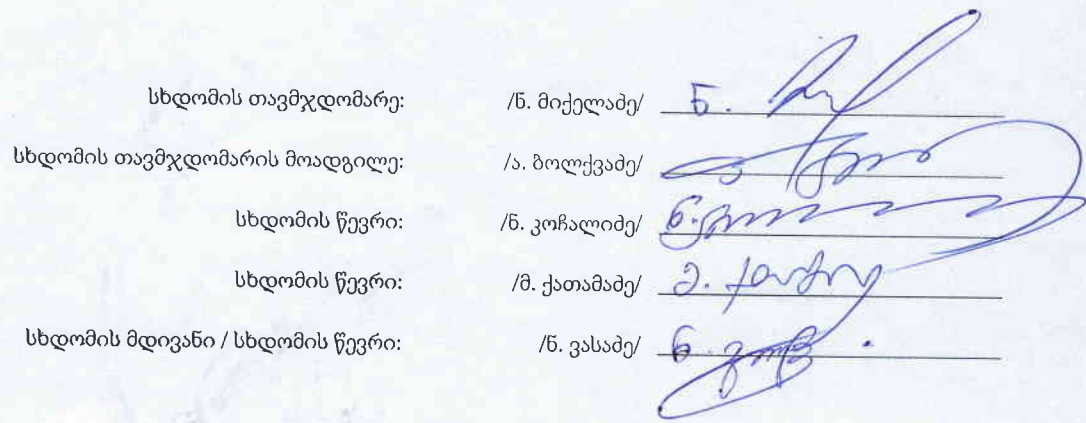 სხდომის თავმჯდომარე: /ნ. მიქელაძე/ ნ.
სხდომის თავმჯდომარის მოადგილე: /ა. ბოლქვაძე/
სხდომის წევრი: /ნ. კოჩალიძე/ ნ.
სხდომის წევრი: /მ. ქათამაძე/ მ.
სხდომის მდივანი / სხდომის წევრი: /ნ. ვასაძე/ ნ.